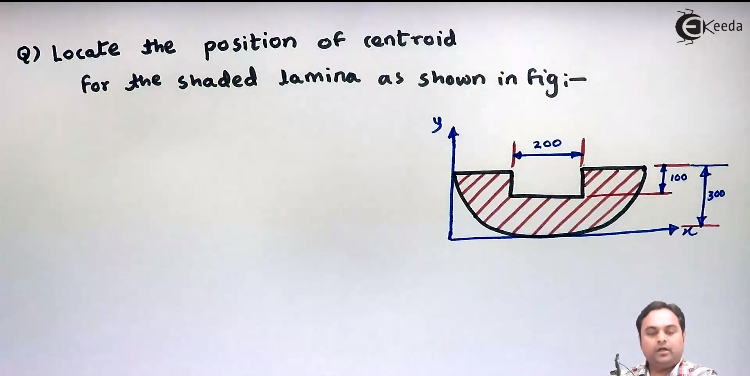 Q) Locate the position of centroid
for the shaded lamina as shown in fig:-
EKeeda
y
200
100
300
x